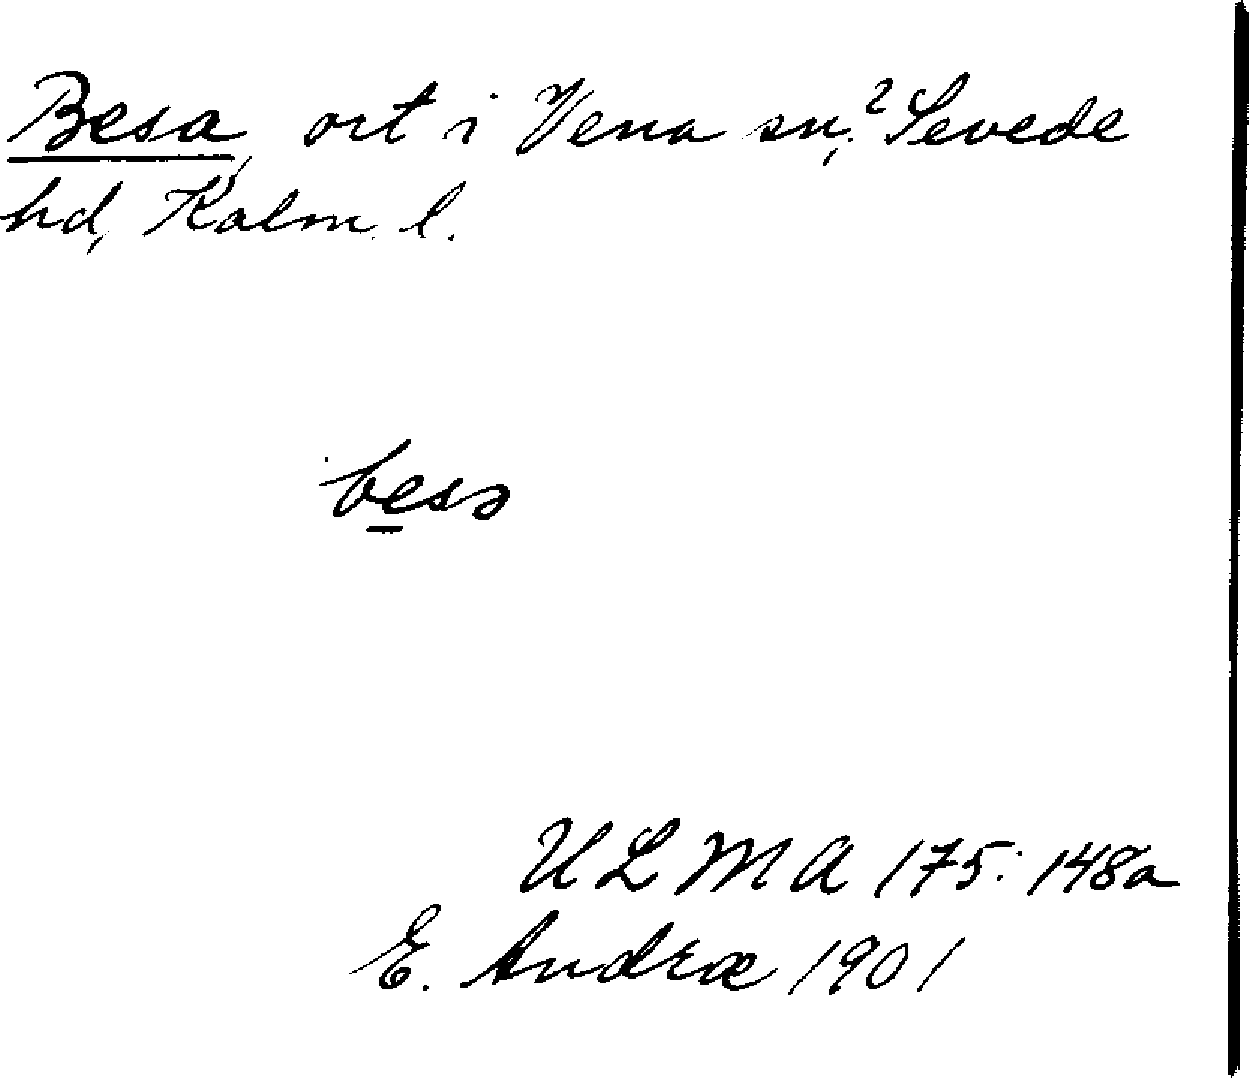 Besa, ort i Vena sn,? Sevede
hd, Kalm. l.
besə
ULMA 175:148a
E. Andræ 1901